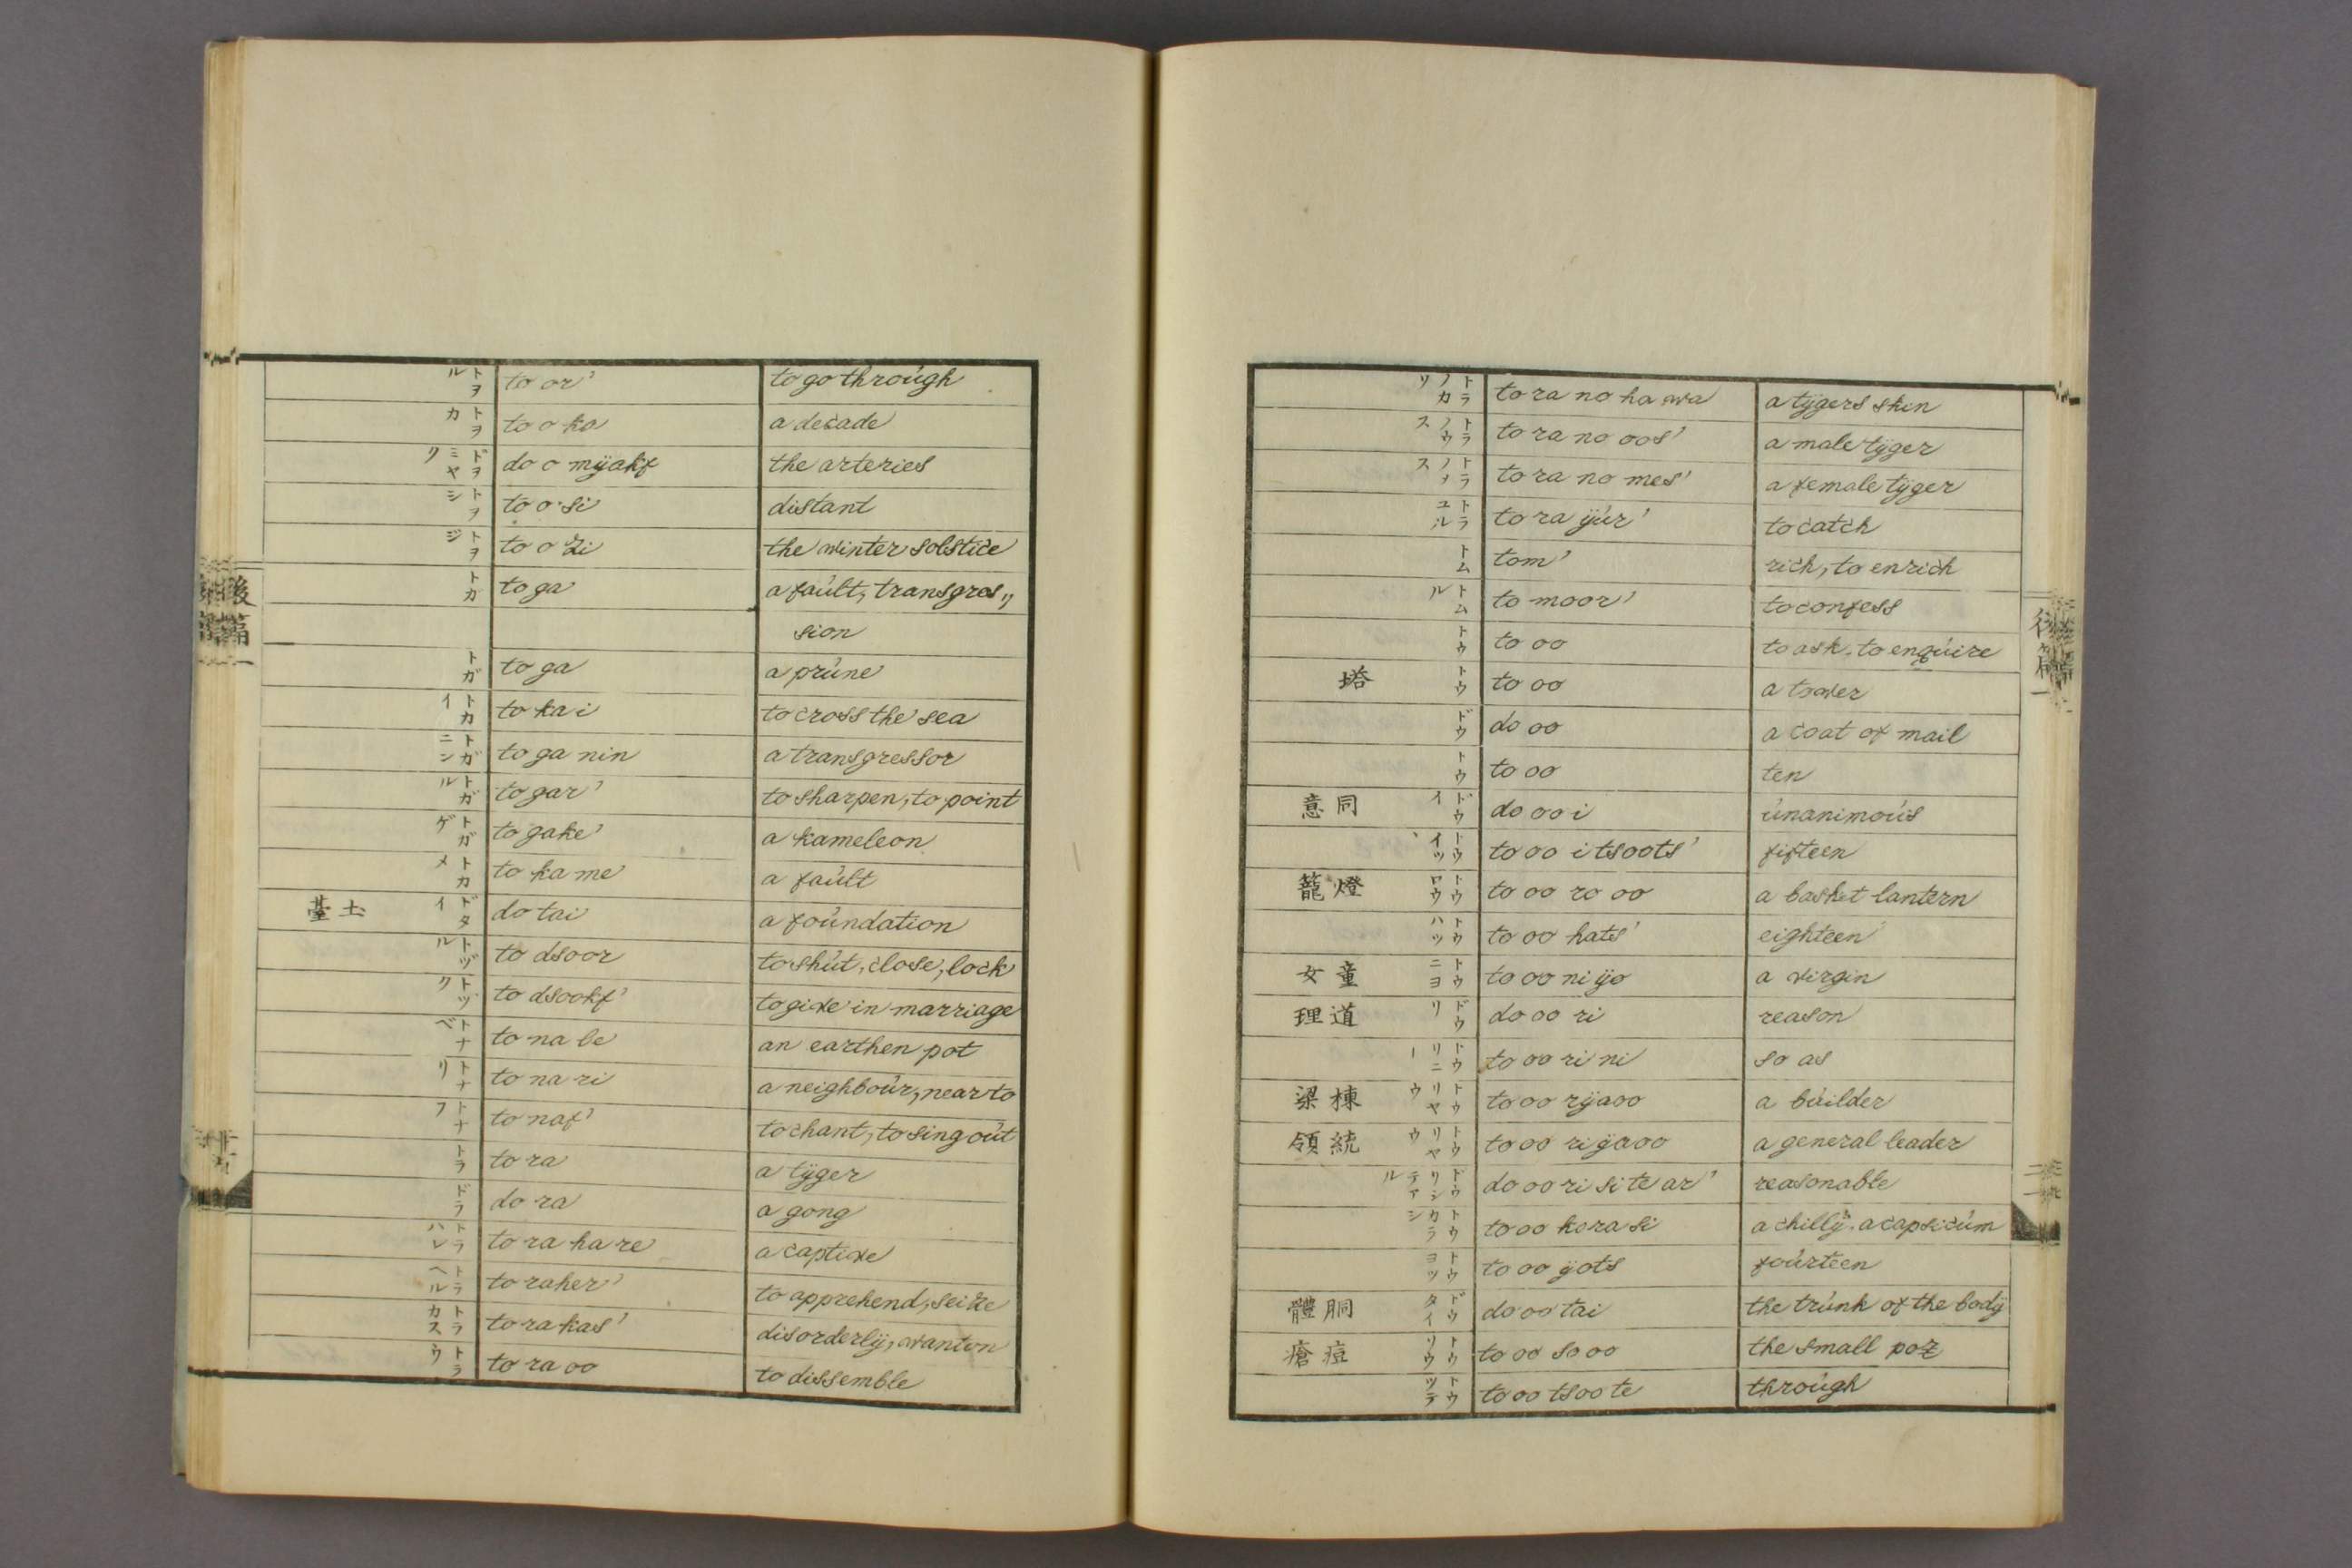 トヲル to or' to go through
トヲカ to o ka a decade
ドヲミヤク do o mÿakf the arteries
トヲシ to o si distant
トヲジ to o zi the winter solstice
トカ to ga a fault, transgres〃
sion
トガ to ga a prune
トカイ to ka i to cross the sea
トガニン to ga nin a transgressor
トガル to gar' to sharpen, to point
トガゲ to gake' a kameleon
トカメ to ka me a fault
土臺 ドタイ do tai a foundation
トヅル to dsoor to shut, close, lock
トヅク to dsookf' to give in marriage
トナベ to na be an earthen pot
トナリ to na ri a neighbour, near to
トナフ to naf' to chant, to sing out
トラ to ra a tÿger
ドラ do ra a gong
トラハレ to ra ha re a captive
トラヘル to raher' to apprehend, seize
トラカス to ra kas' disorderlÿ, wanton
トラウ to ra oo to dissemble
後篇
トラノカワ to ra no ha wa a tÿgers skin
トラノウス to ra no oos' a male tÿger
トラノメス to ra no mes' a female tÿger
トラユル to ra ÿur' to catch
トム tom' rich, to enrich
トムル to moor' to confess
トウ to oo to ask, to enquire
塔 トウ to oo a tower
ドウ do oo a coat of mail
トウ to oo ten
同意 ドウイ do oo i unanimous
トウイツヽ to oo itsoots' fifteen
燈籠 トウロウ to oo ro oo a basket lantern
トウハツ to oo hats' eighteen
童女 トウニヨ to oo ni ÿo a virgin
道理 ドウリ do oo ri reason
ドウリニー to oo ri ni so as
棟梁 トウリヤウ to oo rÿaoo a builder
統領 トウリヤウ to oo ri ÿaoo a general leader
ドウリシテアル do oo ri si te ar' reasonable
トウカラシ to oo ka ra si a chillÿ, a capsicum
トウヨツ to oo ÿots fourteen
胴體 ドウタイ do oo tai the trunk of the bodÿ
痘瘡 トウソウ to oo so oo the small pox
トウツテ to oo tsoo te through